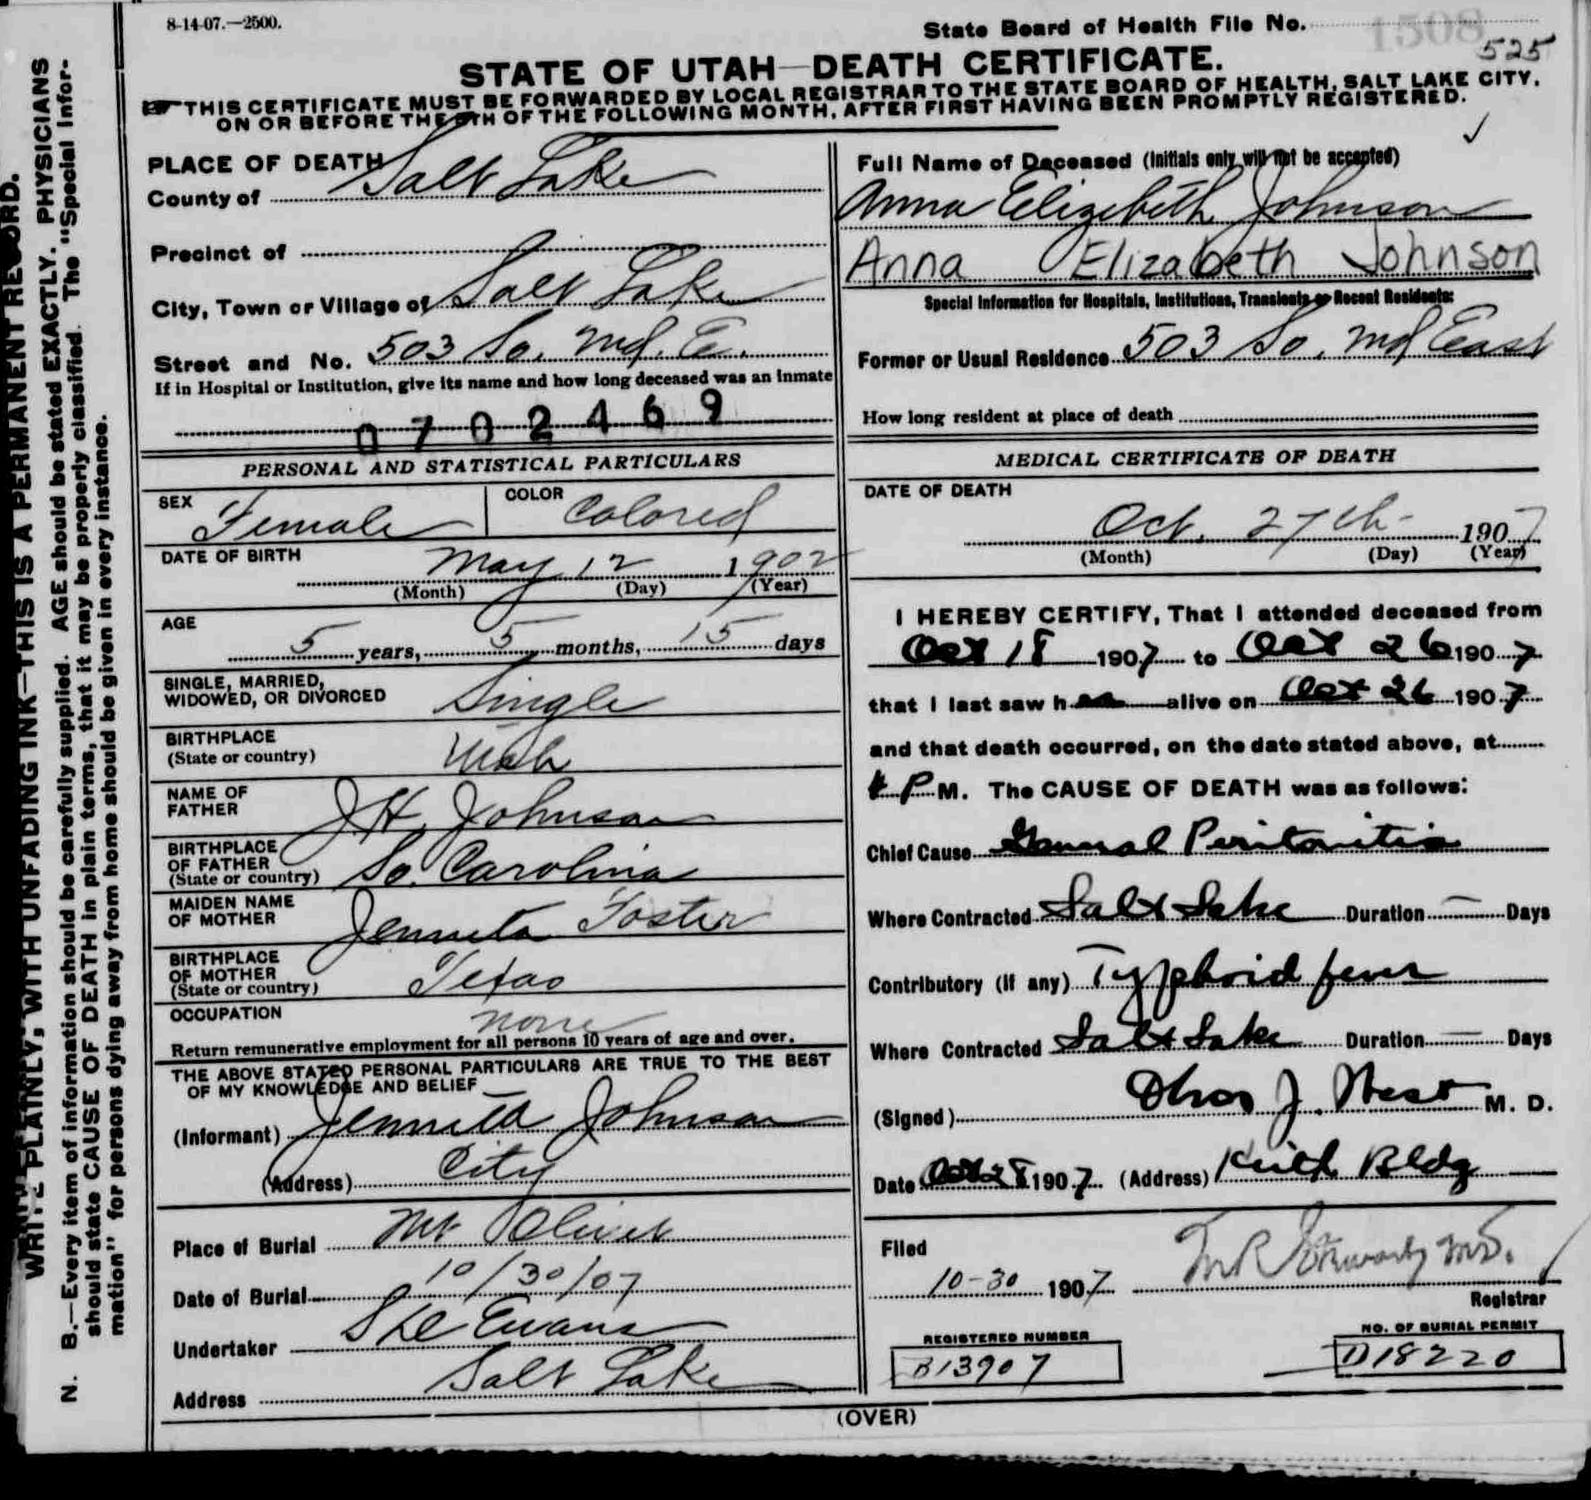 8-14-07.—2500.
State Board of Health File No. 1508
525
STATE OF UTAH—DEATH CERTIFICATE.
THIS CERTIFICATE MUST BE FORWARDED BY LOCAL REGISTRAR TO THE STATE BOARD OF HEALTH, SALT LAKE CITY,
ON OR BEFORE THE 5TH OF THE FOLLOWING MONTH, AFTER FIRST HAVING BEEN PROMPTLY REGISTERED.
WRITE PLAINLY, WITH UNFADING INK—THIS IS A PERMANENT RECORD.
N. B.—Every item of information should be carefully supplied. AGE should be stated EXACTLY. PHYSICIANS
should state CAUSE OF DEATH in plain terms, that it may be properly classified. The "Special Infor-
mation" for persons dying away from home should be given in every instance.
PLACE OF DEATH
County of Salt Lake
Precinct of
City, Town or Village of Salt Lake
Street and No. 503 So. 2nd. E.
If in Hospital or Institution, give its name and how long deceased was an inmate
0702469
PERSONAL AND STATISTICAL PARTICULARS
SEX Female
COLOR Colored
DATE OF BIRTH
May 12 1902
(Month) (Day) (Year)
AGE
5 years, 5 months, 15 days
SINGLE, MARRIED,
WIDOWED, OR DIVORCED Single
BIRTHPLACE
(State or country) Utah
NAME OF
FATHER J H Johnson
BIRTHPLACE
OF FATHER
(State or country) So. Carolina
MAIDEN NAME
OF MOTHER Jennieta Foster
BIRTHPLACE
OF MOTHER
(State or country) Texas
OCCUPATION none
Return remunerative employment for all persons 10 years of age and over.
THE ABOVE STATED PERSONAL PARTICULARS ARE TRUE TO THE BEST
OF MY KNOWLEDGE AND BELIEF
(Informant) Jennieta Johnson
(Address) City
Place of Burial Mt Olivet
Date of Burial 10/30/07
Undertaker Evans
Address Salt Lake
Full Name of Deceased (Initials only will not be accepted)
Anna Elizebeth Johnson
Anna Elizabeth Johnson
Special Information for Hospitals, Institutions, Transients or Recent Residents:
Former or Usual Residence 503 So. 2nd East
How long resident at place of death
MEDICAL CERTIFICATE OF DEATH
DATE OF DEATH
Oct. 27th 1907
(Month) (Day) (Year)
I HEREBY CERTIFY, That I attended deceased from
Oct 18 1907 to Oct 26 1907
that I last saw h alive on Oct 26 1907
and that death occurred, on the date stated above, at
P M. The CAUSE OF DEATH was as follows:
Chief Cause General Peritonitis
Where Contracted Salt Lake Duration — Days
Contributory (if any) Typhoid fever
Where Contracted Salt Lake Duration — Days
(Signed) J. West M. D.
Date Oct 28 1907 (Address) Keith Bldg
Filed
10-30 1907 M R M.D.
Registrar
REGISTERED NUMBER
B13907
NO. OF BURIAL PERMIT
D18220
(OVER)